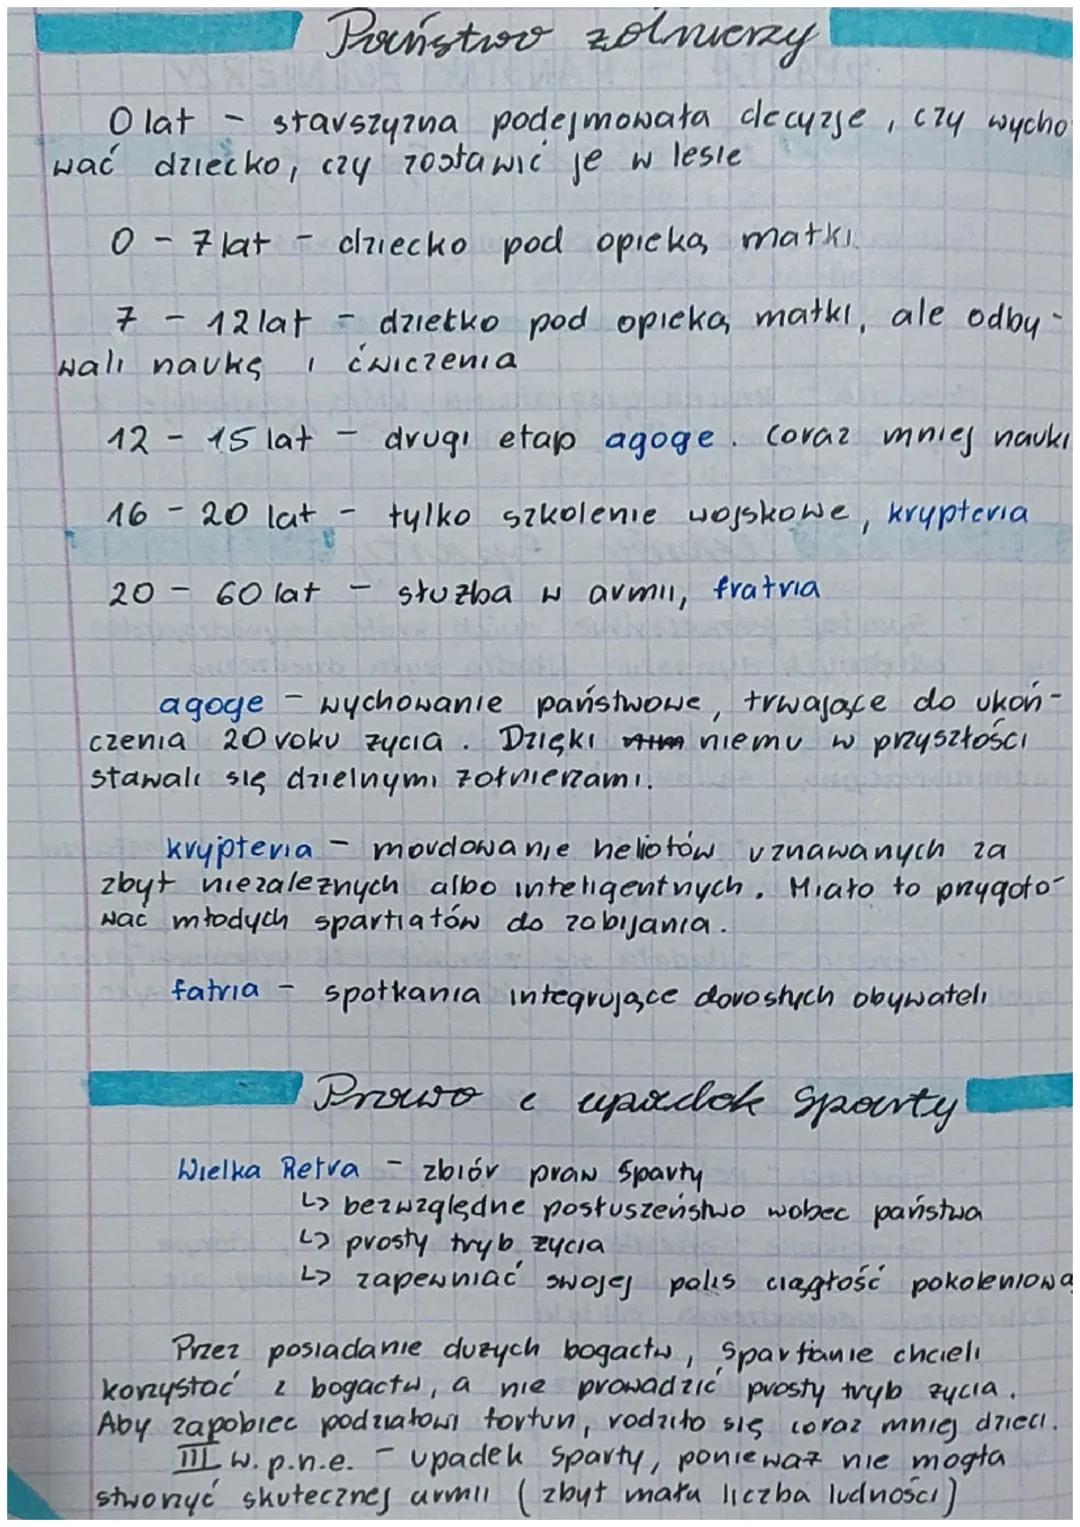 Państwo żołnierzy
0 lat - starszyzna podejmowała decyzje, czy wycho
wać dziecko, czy zostawić je w lesie
0 - 7 lat - dziecko pod opieką matki.
7 - 12 lat - dziecko pod opieką matki, ale odby-
wali naukę i ćwiczenia
12 - 15 lat - drugi etap agoge. Coraz mniej nauki
16 - 20 lat - tylko szkolenie wojskowe, krypteria
20 - 60 lat - służba w armii, fratria
agoge - wychowanie państwowe, trwające do ukoń-
czenia 20 roku życia. Dzięki niemu w przyszłości
stawali się dzielnymi żołnierzami.
krypteria - mordowanie heliotów uznawanych za
zbyt niezależnych albo inteligentnych. Miało to przygoto-
wać młodych spartiatów do zabijania.
fatria - spotkania integrujące dorosłych obywateli
Prawo i upadek Sparty
Wielka Retra - zbiór praw Sparty
↳ bezwzględne posłuszeństwo wobec państwa
↳ prosty tryb życia
↳ zapewniać swojej polis ciągłość pokoleniową
Przez posiadanie dużych bogactw, Spartanie chcieli
korzystać z bogactw, a nie prowadzić prosty tryb życia.
Aby zapobiec podziałowi fortun, rodziło się coraz mniej dzieci.
III w. p.n.e. - upadek Sparty, ponieważ nie mogła
stworzyć skutecznej armii (zbyt mała liczba ludności)